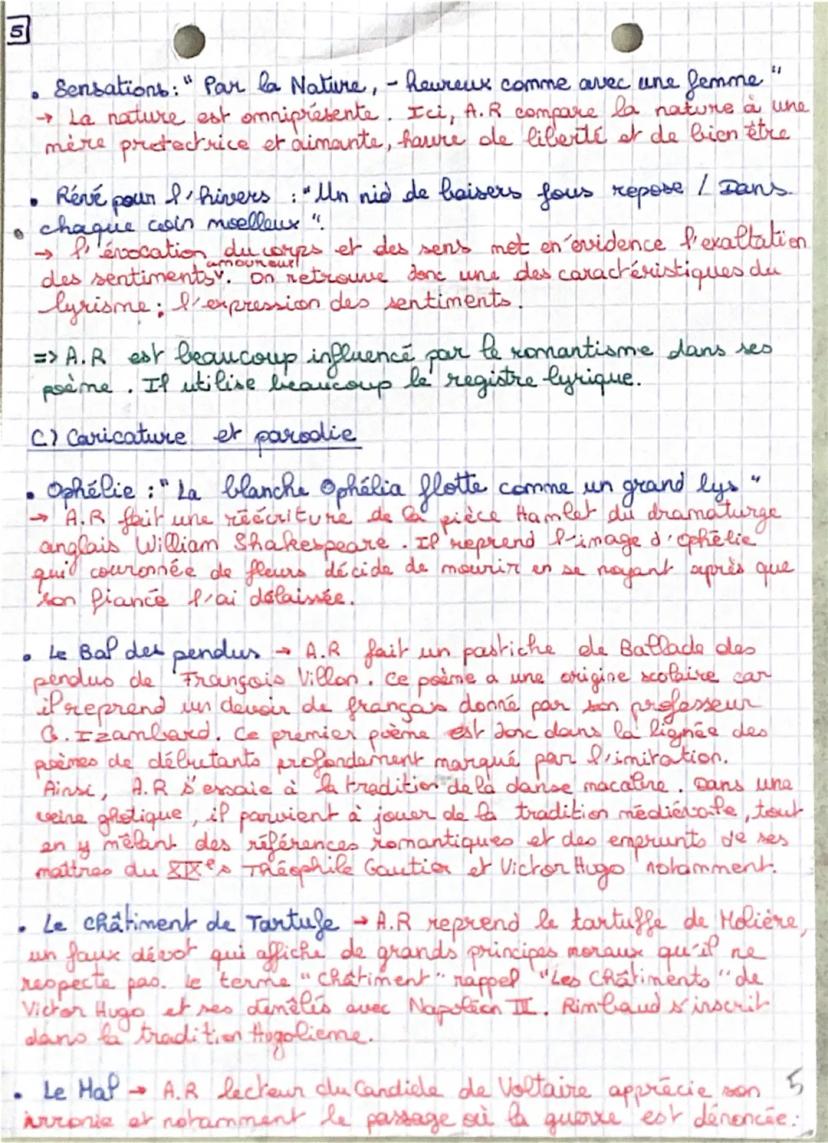 5
• Sensations : " Par la Nature, - heureux comme avec une femme "
→ La nature est omniprésente. Ici, A.R compare la nature à une
mère protectrice et aimante, havre de liberté et de bien être
• Rêvé pour l'hivers : " Un nid de baisers fous repose / Dans
chaque coin moelleux ".
→ l'évocation du corps et des sens met en évidence l'exaltation
des sentiments amoureux. On retrouve donc une des caractéristiques du
lyrisme : l'expression des sentiments.
=> A.R est beaucoup influencé par le romantisme dans ses
poème. Il utilise beaucoup le registre lyrique.
C) Caricature et parodie
• Ophélie : " La blanche Ophélia flotte comme un grand lys "
→ A.R fait une réécriture de la pièce Hamlet du dramaturge
anglais William Shakespeare. Il reprend l'image d'Ophélie
qui couronnée de fleurs décide de mourir en se noyant après que
son fiancé l'ai délaissée.
• Le Bal des pendus → A.R fait un pastiche de Ballade des
pendus de François Villon. Ce poème a une origine scolaire car
il reprend un devoir de français donné par son professeur
G. Izambard. Ce premier poème est donc dans la lignée des
poèmes de débutants profondément marqué par l'imitation.
Ainsi, A.R s'essaie à la tradition de la danse macabre. Dans une
veine ghotique, il parvient à jouer de la tradition médiévale, tout
en y mêlant des références romantiques et des emprunts de ses
maîtres du XIXe s Théophile Gautier et Victor Hugo notamment.
• Le châtiment de Tartufe → A.R reprend le tartuffe de Molière,
un faux dévot qui affiche de grands principes moraux qu'il ne
respecte pas. Le terme " châtiment " rappel " Les Châtiments " de
Victor Hugo et ses démêlés avec Napoléon III. Rimbaud s'inscrit
dans la tradition Hugolienne.
• Le Mal → A.R lecteur du Candide de Voltaire apprécie son
irronie et notamment le passage où la guerre est dénoncée :
5